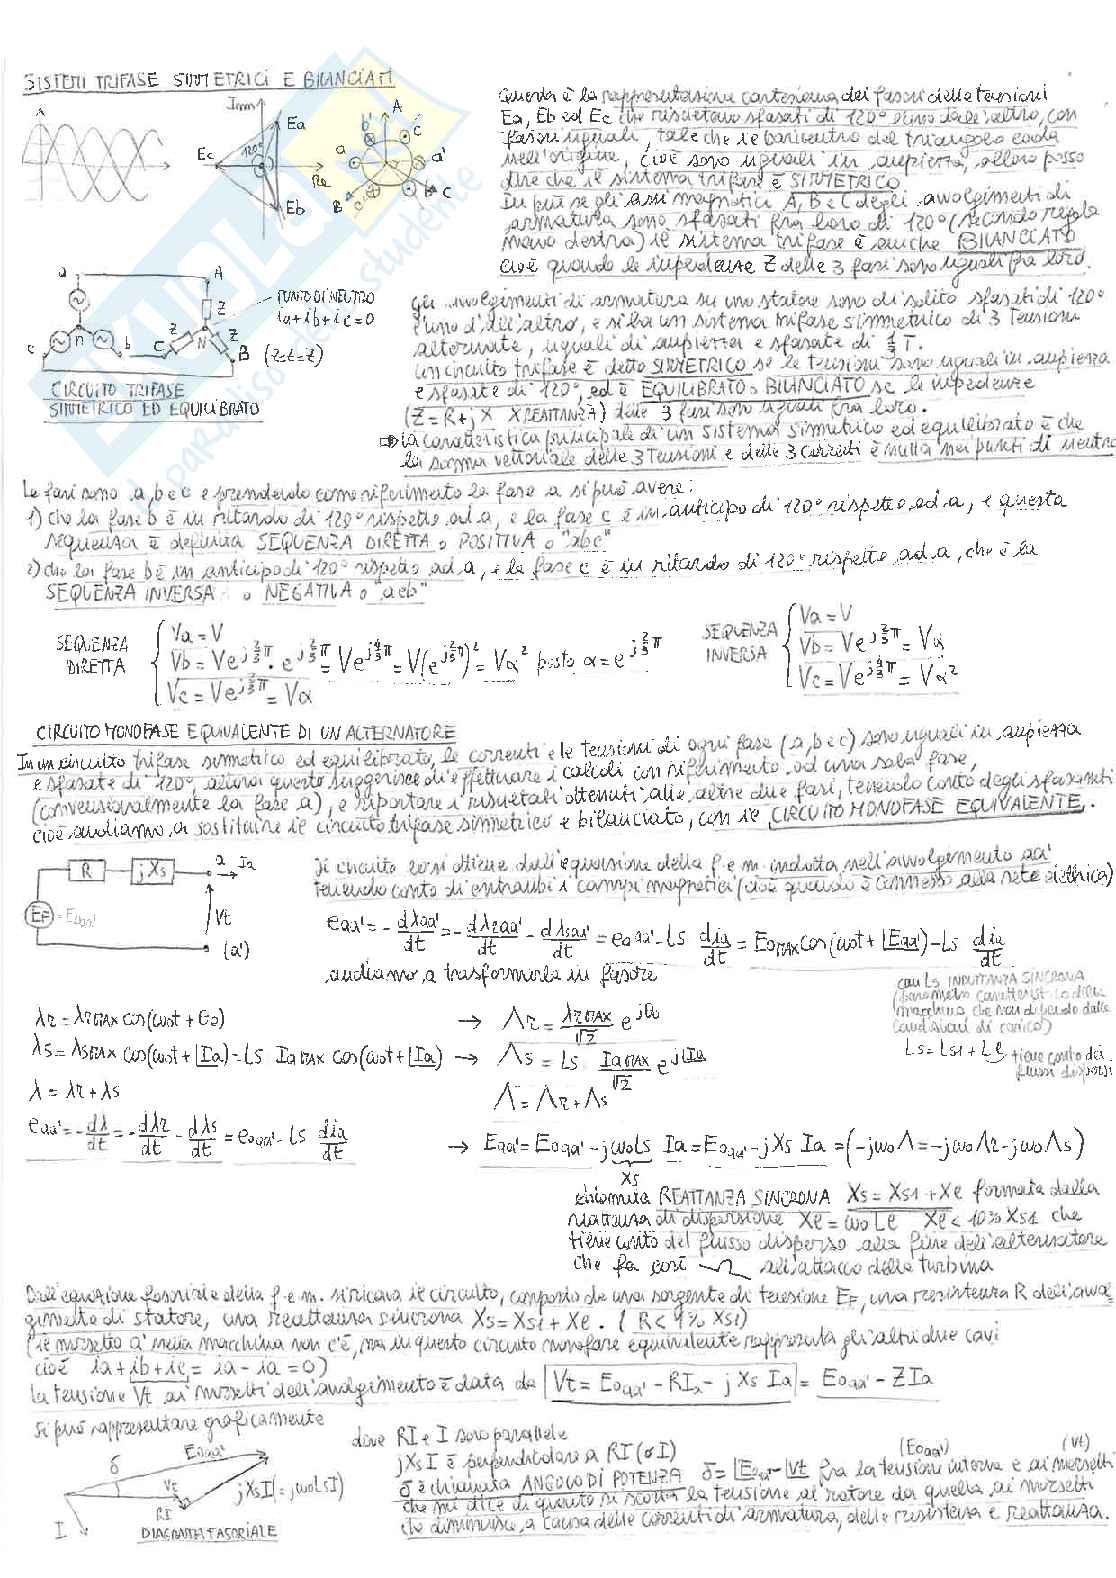 SISTEMI TRIFASE SIMMETRICI E BILANCIATI
Questa è la rappresentazione cartesiana dei fasori delle tensioni
Ea, Eb ed Ec che risultano sfasati di 120° l'uno dall'altro, con
fasori uguali, tale che il baricentro del triangolo cada
nell'origine, cioè sono uguali in ampiezza, allora posso
dire che il sistema trifase è SIMMETRICO.
In più se gli assi magnetici A, B e C degli avvolgimenti di
armatura sono sfasati fra loro di 120° (secondo regola
mano destra) il sistema trifase è anche BILANCIATO
cioè quando le impedenze Z delle 3 fasi sono uguali fra loro.
Imm
Ea
Ec
120°
Re
Eb
A
b'
c'
a
a'
B
c
b
C
a
A
Z
n
N
c
b
C
B
PUNTO DI NEUTRO
ia+ib+ic=0
(Z=Z=Z)
CIRCUITO TRIFASE
SIMMETRICO ED EQUILIBRATO
Gli avvolgimenti di armatura su uno statore sono di solito sfasati di 120°
l'uno dall'altro, e si ha un sistema trifase simmetrico di 3 tensioni
alternate, uguali di ampiezza e sfasate di 1/3 T.
Un circuito trifase è detto SIMMETRICO se le tensioni sono uguali in ampiezza
e sfasate di 120°, ed è EQUILIBRATO o BILANCIATO se le impedenze
(Z=R+jX X REATTANZA) delle 3 fasi sono uguali fra loro.
⇒ La caratteristica principale di un sistema simmetrico ed equilibrato è che
la somma vettoriale delle 3 tensioni e delle 3 correnti è nulla nei punti di neutro
Le fasi sono a, b e c e prendendo come riferimento la fase a si può avere:
1) che la fase b è in ritardo di 120° rispetto ad a, e la fase c è in anticipo di 120° rispetto ad a, e questa
sequenza è definita SEQUENZA DIRETTA o POSITIVA o "abc"
2) che la fase b è in anticipo di 120° rispetto ad a, e la fase c è in ritardo di 120° rispetto ad a, che è la
SEQUENZA INVERSA o NEGATIVA o "acb"
SEQUENZA DIRETTA
Va = V
Vb = Ve^{j2/3π} · e^{j2/3π} = Ve^{j4/3π} = V(e^{j2/3π})² = Vα² posto α = e^{j2/3π}
Vc = Ve^{j2/3π} = Vα
SEQUENZA INVERSA
Va = V
Vb = Ve^{j2/3π} = Vα
Vc = Ve^{j4/3π} = Vα²
CIRCUITO MONOFASE EQUIVALENTE DI UN ALTERNATORE
In un circuito trifase simmetrico ed equilibrato, le correnti e le tensioni di ogni fase (a, b e c) sono uguali in ampiezza
e sfasate di 120°, allora questo suggerisce di effettuare i calcoli con riferimento ad una sola fase,
(convenzionalmente la fase a), e riportare i risultati ottenuti alle altre due fasi, tenendo conto degli sfasamenti
cioè andiamo a sostituire il circuito trifase simmetrico e bilanciato, con il CIRCUITO MONOFASE EQUIVALENTE.
R
jXs
a
Ia
EF = Eoaa'
Vt
(a')
Il circuito lo si ottiene dall'equazione della f.e.m. indotta nell'avvolgimento aa'
tenendo conto di entrambi i campi magnetici (cioè quando è connesso alla rete elettrica)
eaa' = -dλaa'/dt = -dλraa'/dt - dλsaa'/dt = eoaa' - Ls dia/dt = EoMAX cos(ωot + ∠Eaa') - Ls dia/dt
andiamo a trasformarla in fasore
con Ls INDUTTANZA SINCRONA
(parametro caratteristico della
macchina che non dipende dalle
condizioni di carico)
Ls = Ls1 + Le tiene conto dei
flussi dispersi
λr = λrMAX cos(ωot + θo) → Λr = λrMAX/√2 e^{jθo}
λs = λsMAX cos(ωot + ∠Ia) - Ls IaMAX cos(ωot + ∠Ia) → Λs = Ls IaMAX/√2 e^{j∠Ia}
λ = λr + λs Λ = Λr + Λs
eaa' = -dλ/dt = -dλr/dt - dλs/dt = eoaa' - Ls dia/dt → Eaa' = Eoaa' - jωoLs Ia = Eoaa' - jXs Ia = (-jωoΛ = -jωoΛr - jωoΛs)
Xs
chiamata REATTANZA SINCRONA Xs = Xs1 + Xe formata dalla
reattanza di dispersione Xe = ωo Le Xe < 10% Xs1 che
tiene conto del flusso disperso alla fine dell'alternatore
che fa così all'attacco della turbina
Dall'equazione fasoriale della f.e.m. si ricava il circuito, composto da una sorgente di tensione EF, una resistenza R dell'avvol
gimento di statore, una reattanza sincrona Xs = Xs1 + Xe. (R < 1% Xs1)
(il morsetto a' nella macchina non c'è, ma in questo circuito monofase equivalente rappresenta gli altri due cavi
cioè ia+ib+ic = ia - ia = 0)
la tensione Vt ai morsetti dell'avvolgimento è data da Vt = Eoaa' - RIa - jXs Ia = Eoaa' - ZIa
Si può rappresentare graficamente
Eoaa'
δ
Vt
RI
jXsI (= jωoLsI)
I
DIAGRAMMA FASORIALE
dove RI e I sono parallele
jXsI è perpendicolare a RI (o I)
(Eoaa') (Vt)
δ è chiamata ANGOLO DI POTENZA δ = ∠Eoaa' - ∠Vt fra la tensione interna e ai morsetti
che mi dice di quanto si scosta la tensione al rotore da quella ai morsetti
che diminuisce a causa delle correnti di armatura, delle resistenza e reattanza.